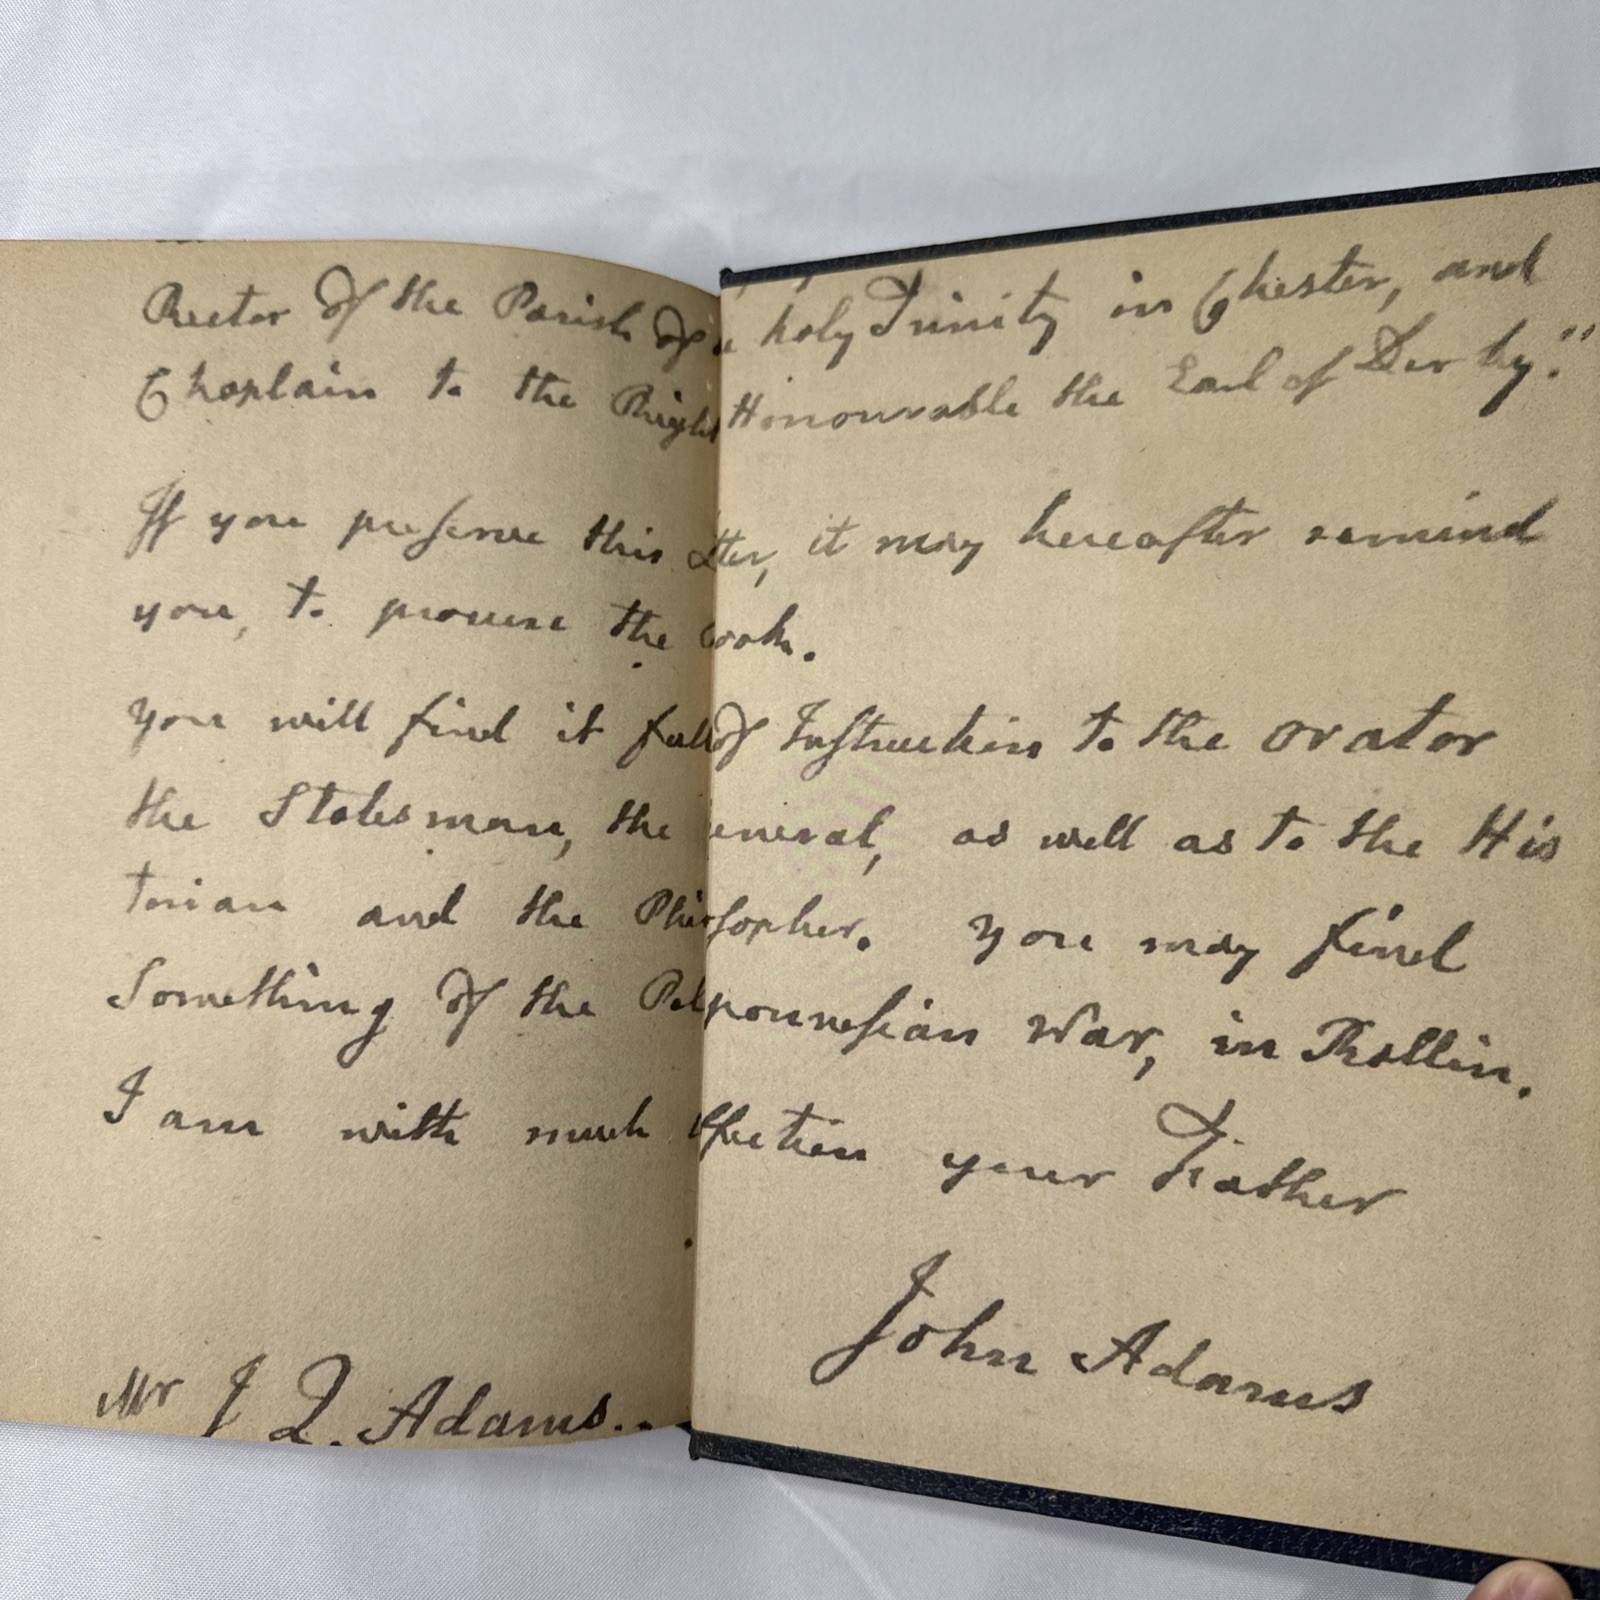 Rector Of the Parish Of holy Trinity in Chester, and
Chaplain to the Right Honourable the Earl of Derby."
If you preserve this tter, it may hereafter remind
you, to procure the ook.
you will find it full of Instruction to the Orator
the Statesman, the eneral, as well as to the His
torian and the Philosopher. you may find
Something Of the Peloponnesian War, in Rollin.
I am with much ffection your Father
John Adams
Mr J Q. Adams.